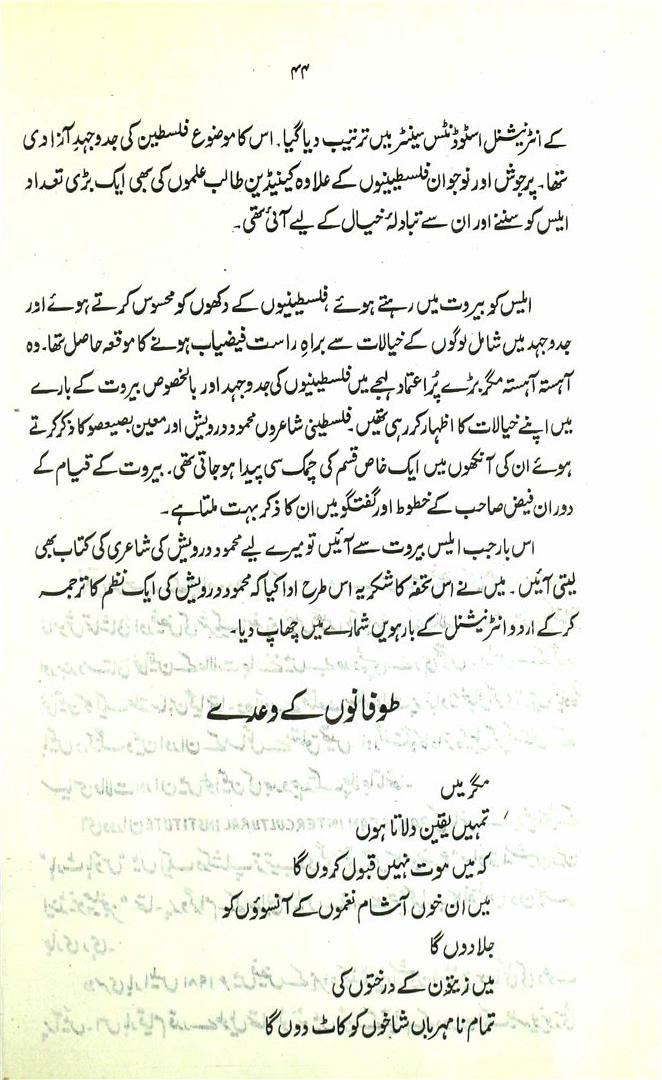 ۴۴
کے انٹرنیشنل اسٹوڈنٹس سینٹر میں ترتیب دیا گیا۔ اس کا موضوع فلسطین کی جدوجہدِ آزادی
تھا۔ پرجوش اور نوجوان فلسطینیوں کے علاوہ کینیڈین طالب علموں کی بھی ایک بڑی تعداد
ایلس کو سننے اور ان سے تبادلۂ خیال کے لیے آئی تھی۔
ایلس کو بیروت میں رہتے ہوئے فلسطینیوں کے دکھوں کو محسوس کرتے ہوئے اور
جدوجہد میں شامل لوگوں کے خیالات سے براہِ راست فیضیاب ہونے کا موقعہ حاصل تھا۔ وہ
آہستہ آہستہ مگر بڑے پُر اعتماد لہجے میں فلسطینیوں کی جدوجہد اور بالخصوص بیروت کے بارے
میں اپنے خیالات کا اظہار کر رہی تھیں۔ فلسطینی شاعروں محمود درویش اور معین بصیعصو کا ذکر کرتے
ہوئے ان کی آنکھوں میں ایک خاص قسم کی چمک سی پیدا ہو جاتی تھی۔ بیروت کے قیام کے
دوران فیض صاحب کے خطوط اور گفتگو میں ان کا ذکر بہت ملتا ہے۔
اس بار جب ایلس بیروت سے آئیں تو میرے لیے محمود درویش کی شاعری کی کتاب بھی
لیتی آئیں۔ میں نے اس تحفہ کا شکریہ اس طرح ادا کیا کہ محمود درویش کی ایک نظم کا ترجمہ
کر کے اردو انٹرنیشنل کے بارہویں شمارے میں چھاپ دیا۔
طوفانوں کے وعدے
مگر میں
تمہیں یقین دلاتا ہوں
کہ میں موت نہیں قبول کروں گا
میں ان خوں آشام نغموں کے آنسوؤں کو
جلا دوں گا
میں زیتون کے درختوں کی
تمام نامہرباں شاخوں کو کاٹ دوں گا